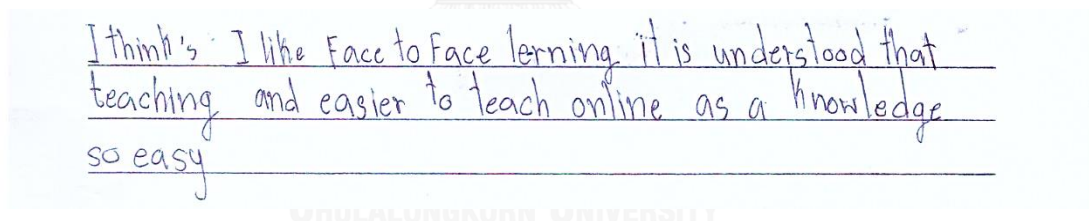 I think's I like Face to Face lerning it is understood that
teaching and easier to teach online as a knowledge
so easy
CHULALONGKORN UNIVERSITY